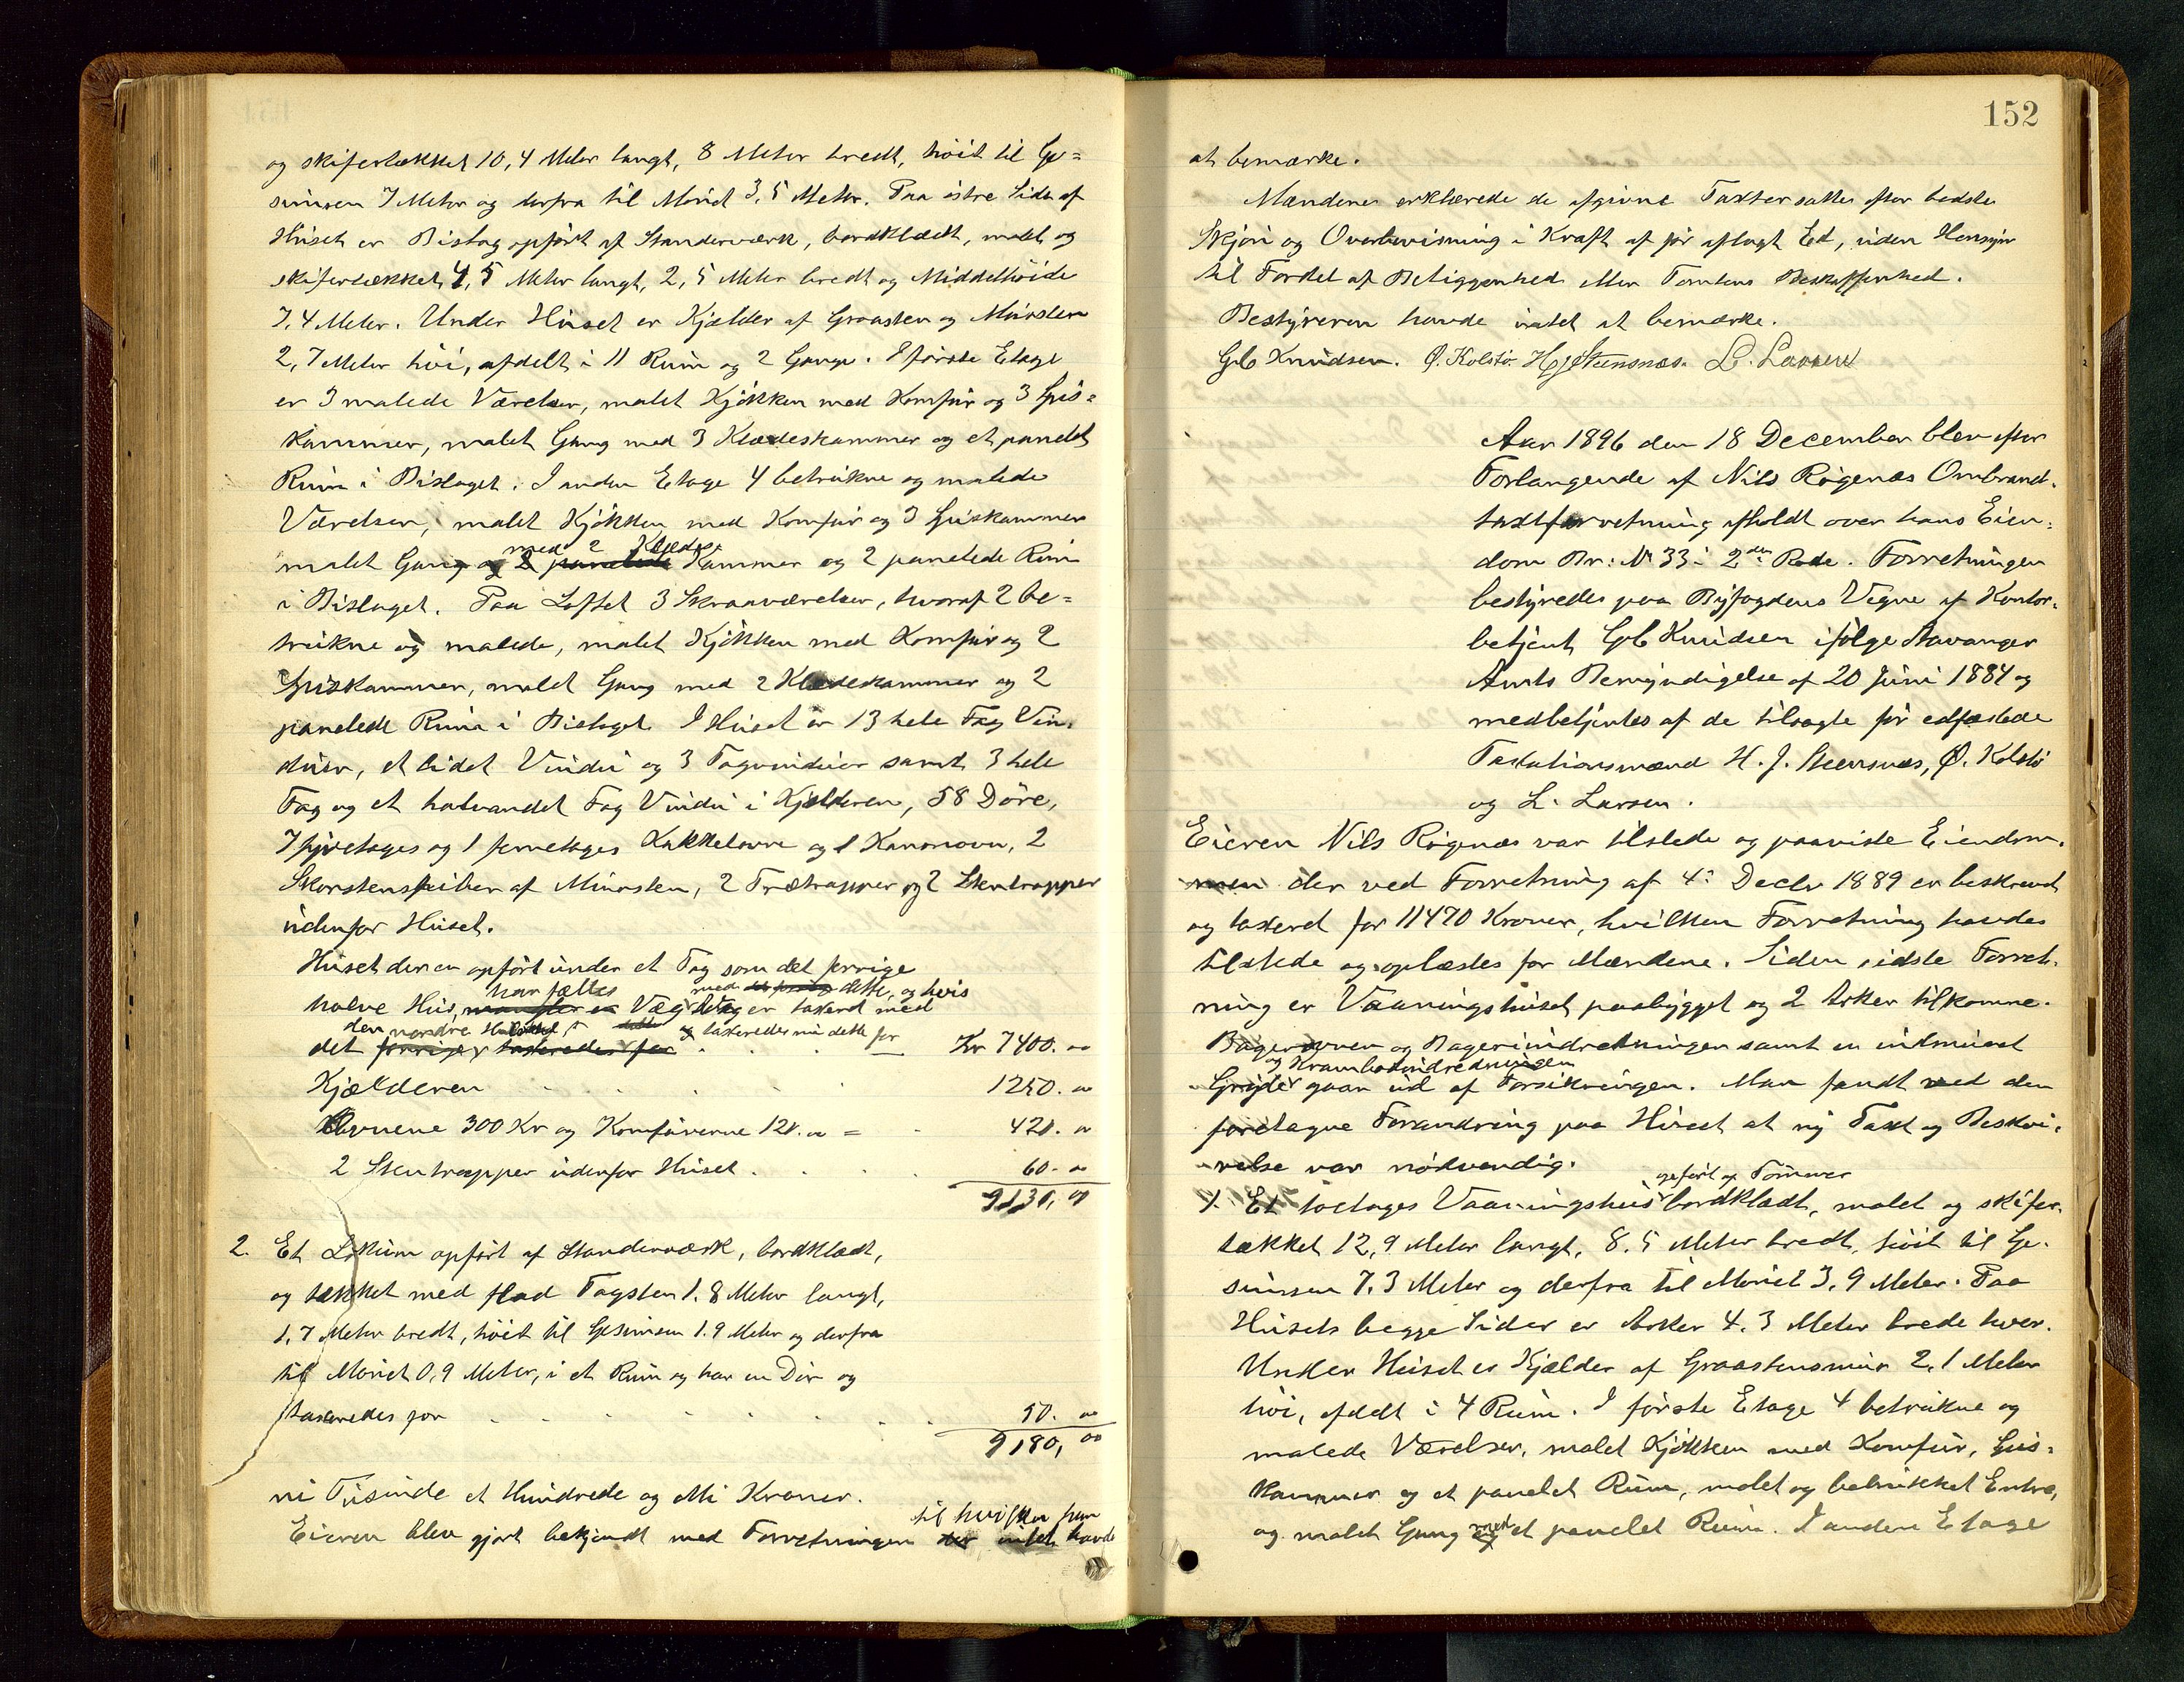 og skifertækket 10,4 Meter langt, 8 Meter bredt, höit til Ge=
simsen 7 Meter og derfra til Mønet 3,5 Meter. Paa östre Side af
Huset er Bislag opfört af Standerværk, bordklædt, malet og
skifertækket, 4,5 Meter langt, 2,5 Meter bredt og Middelhöide
7,4 Meter. Under Huset er Kjælder af Graasten og Mursten
2,7 Meter höi, afdelt i 11 Rum og 2 Gange. I förste Etage
er 3 malede Værelser, malet Kjökken med Komfur og 3 Spis=
kammer, malet Gang med 3 Klædeskammer og et panelet
Rum i Bislaget. I anden Etage 4 betrukne og malede
Værelser, malet Kjökken med Komfur og 3 Spiskammer
med 2 Klædes
malet Gang og 2 panelede Kammer og 2 panelede Rum
i Bislaget. Paa Loftet 3 Skraaværelser, hvoraf 2 be=
trukne og malede, malet Kjökken med Komfur og 2
Spiskammer, malet Gang med 2 Klædeskammer og 2
panelede Rum i Bislaget. I Huset er 13 hele Fag Vin-
duer, et lidet Vindu og 3 Tagvinduer samt 3 hele
Fag og et halvandet Fag Vindu i Kjælderen, 58 Döre,
7 fjiretages og 1 femetages Kakkelovne og 1 Kanonovn, 2
Skorstenspiber af Mursten, 2 Trætrapper og 2 Stentrapper
udenfor Huset.
Huset der er opfört under et Tag som det forrige
har fælles med det forrige dette, og hvis
halve Hus, mangler en Væg Vægdelag er taxeret med
den nordre og taxeredes nu dette for
det forrige taxeredes for Kr 7400. 00
Kjælderen 1250. 00
Ovnene 300 Kr og Komfurerne 120. 00 = 420. 00
2 Stentrapper udenfor Huset. 60. 00
9130, 00
2. Et Lokum opfört af Standerværk, bordklædt,
og tækket med flad Tagsten 1.8 Meter langt,
1.7 Meter bredt, höit til Gesimsen 1.9 Meter og derfra
til Mönet 0,9 Meter, i et Rum og har en Dör og
taxeredes for 50. 00
9180, 00
ni Tusinde et Hundrede og otti Kroner.
til hvilken han
Eieren blev gjort bekjendt med Forretningen der intet havde
152
at bemærke.
Mændene erklærede de afgivne Taxter satte efter bedste
Skjön og Overbevisning i Kraft af för aflagt Ed, uden Hensyn
til Fordel af Beliggenhed eller Tomtens Beskaffenhed.
Bestyreren havde intet at bemærke.
Gab Knudsen. Ø. Kolstö. H J Steensnæs. L. Larsen
Aar 1896 den 18 December blev efter
Forlangende af Nils Rögenæs Ombrand-
taxtforretning afholdt over hans Eien-
dom Br: N 33 i 2den Rode. Forretningen
bestyredes paa Byfogdens Vegne af Kontor-
betjent Gab Knudsen ifölge Stavanger
Amts Bemyndigelse af 20 Juni 1884 og
medbetjentes af de tilsagte för edfæstede
Taxationsmænd H. J. Steensnæs, Ø. Kolstö
og L. Larsen.
Eieren Nils Rögenæs var tilstede og paaviste Eiendom-
men der ved Forretning af 4de Decbr 1889 er beskrevet
og taxeret for 11470 Kroner, hvilken Forretning havdes
tilstede og oplæstes for Mændene. Siden sidste Forret-
ning er Vaaningshuset paabygget og 2 Arker tilkomne.
Bagerovnen og Bagerindretningen samt en indmuret
og Krambodindredningen
Gryde gaar ud af Forsikringen. Man fandt ved den
foretagne Forandring paa Huset at ny Taxt og Beskri-
velse var nödvendig.
opfört af Tömmer
1. Et toetages Vaaningshus bordklædt, malet og skifer-
tækket 12,9 Meter langt, 8.5 Meter bredt, höit til Ge-
simsen 7.3 Meter og derfra til Mönet 3.9 Meter. Paa
Husets begge Sider er Arker 4.3 Meter brede hver.
Under Huset er Kjælder af Graastensmur 2,1 Meter
höi, afdelt i 4 Rum. I förste Etage 4 betrukne og
malede Værelser, malet Kjökken med Komfur, Spis-
kammer og et panelet Rum, malet og betrukket Entre,
og malet Gang med et panelet Rum. I anden Etage